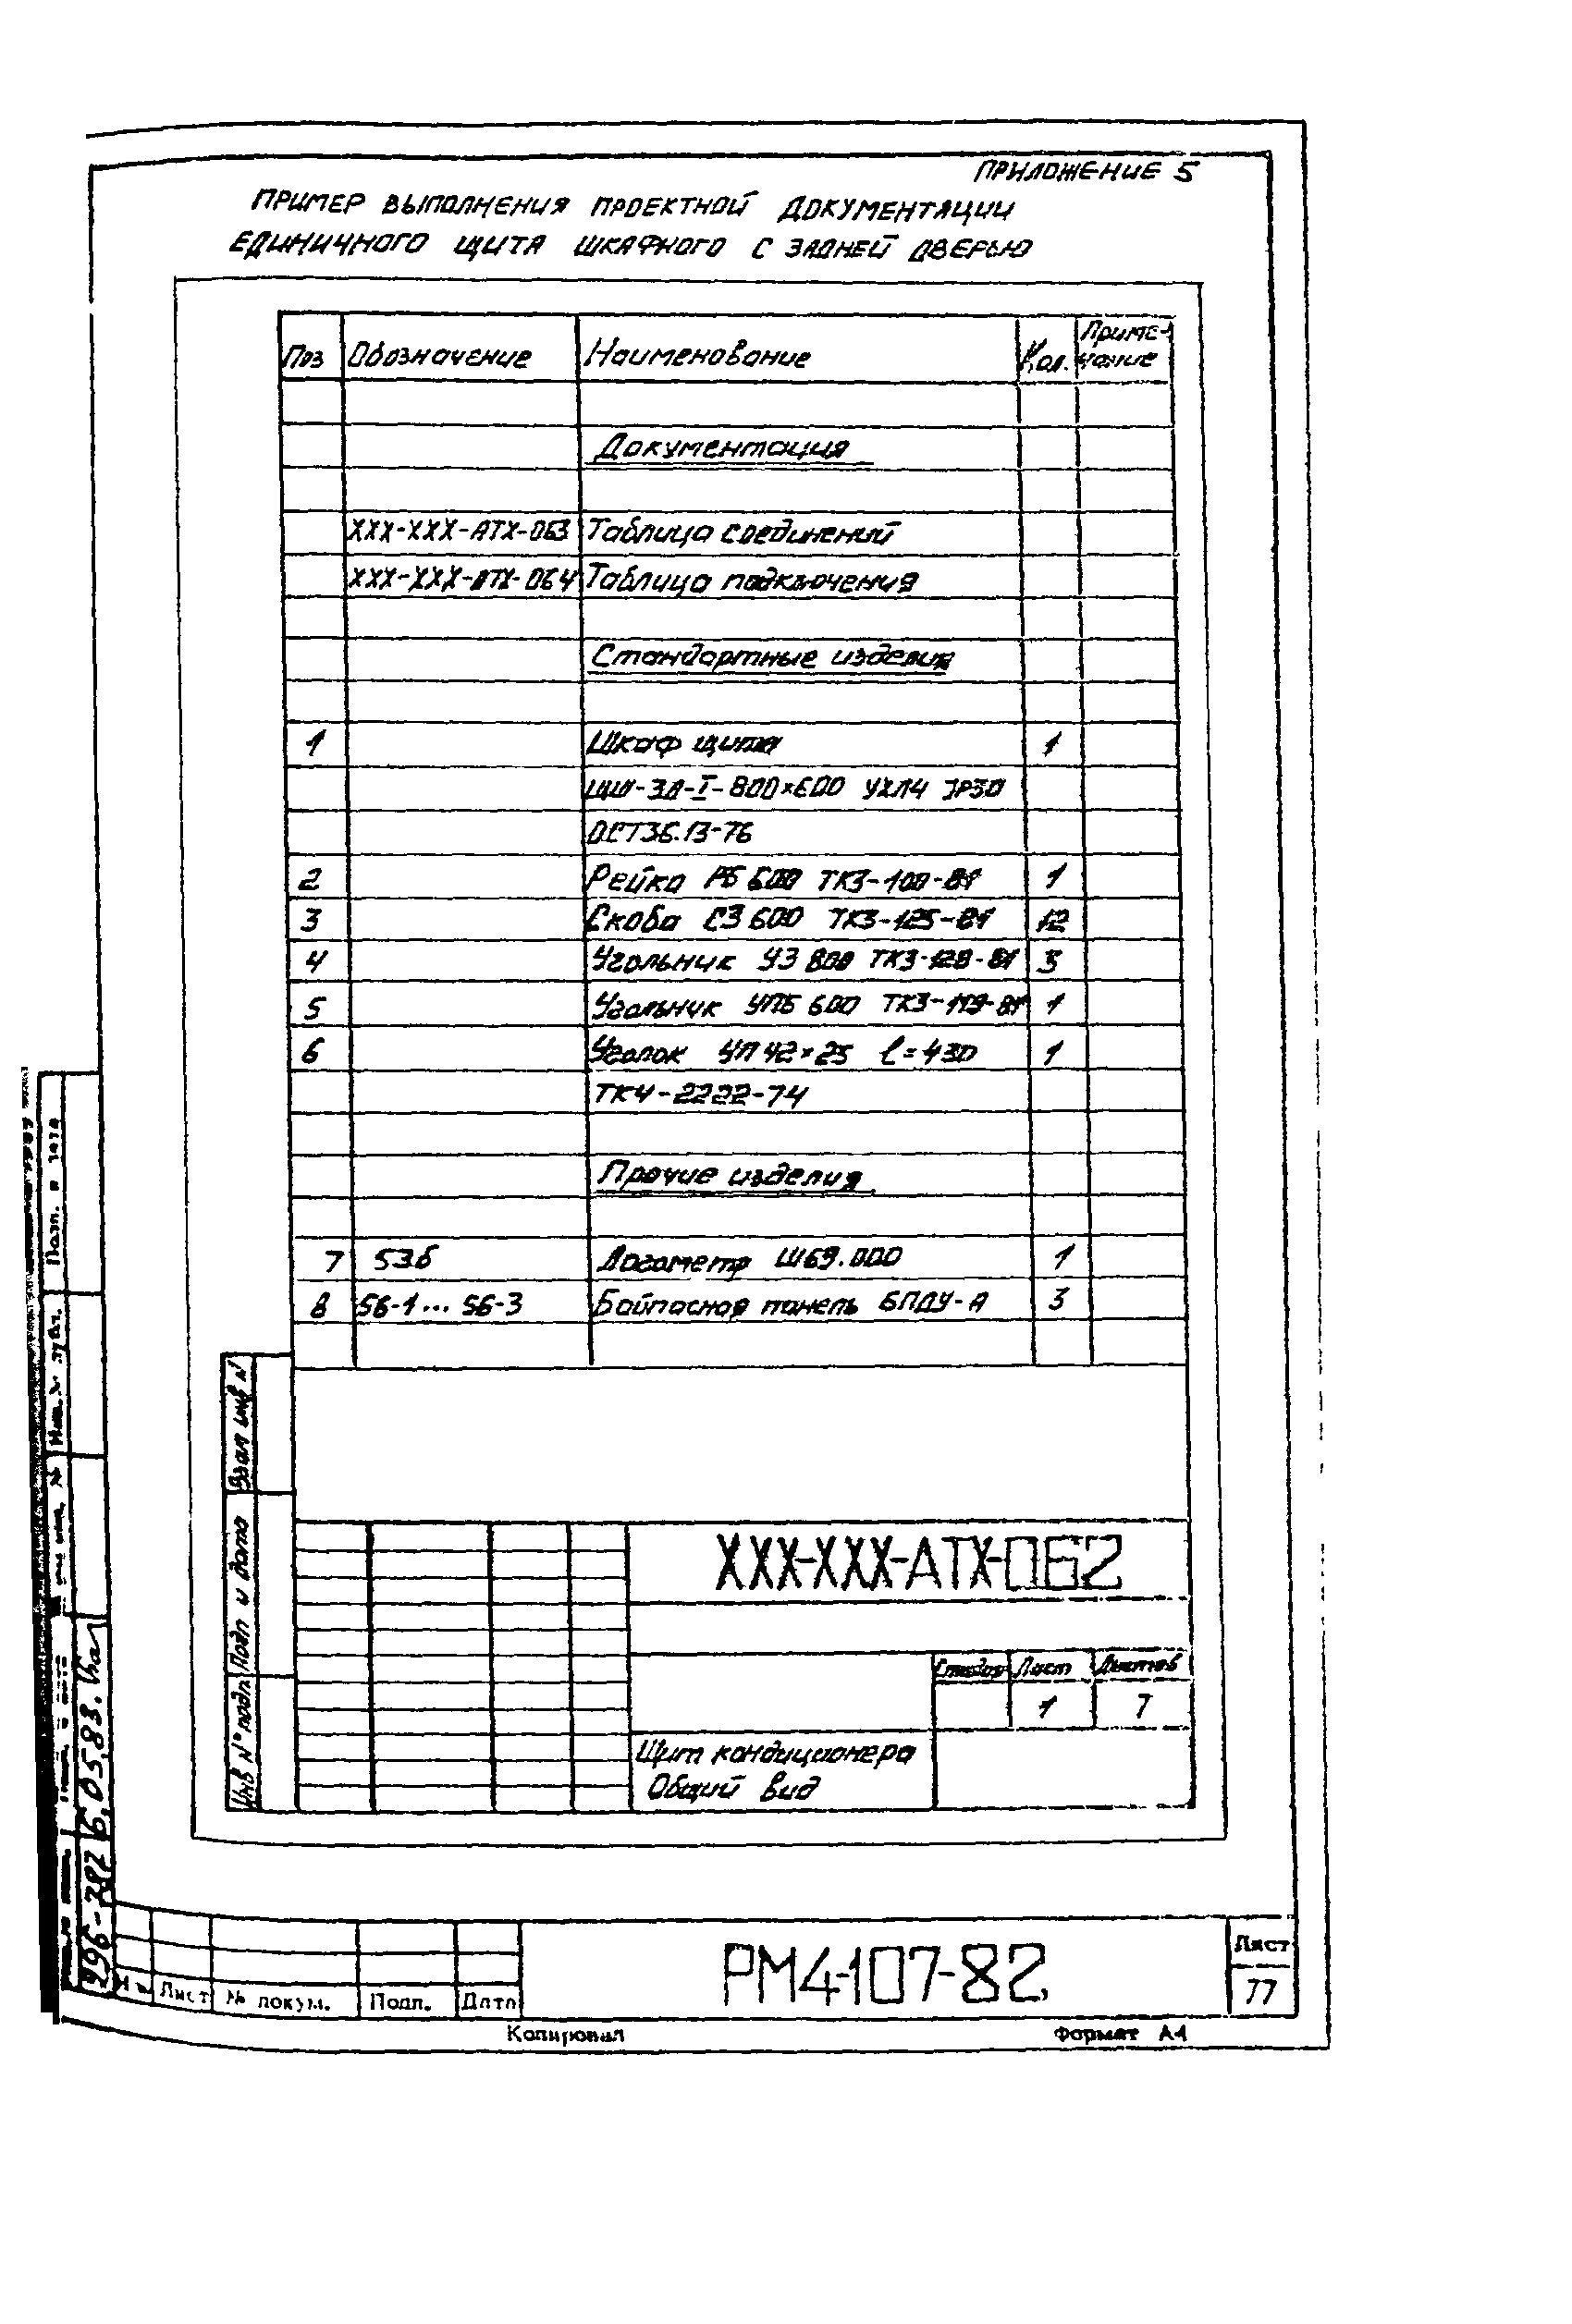 ПРИЛОЖЕНИЕ 5
ПРИМЕР ВЫПОЛНЕНИЯ ПРОЕКТНОЙ ДОКУМЕНТАЦИИ
ЕДИНИЧНОГО ЩИТА ШКАФНОГО С ЗАДНЕЙ ДВЕРЬЮ
Поз Обозначение Наименование Кол. Примечание
Документация
ХХХ-ХХХ-АТХ-063 Таблица соединений
ХХХ-ХХХ-АТХ-064 Таблица подключения
Стандартные изделия
1 Шкаф щита 1
ЩШ-ЗД-I-800×600 УХЛ4 IP30
ОСТ36.13-76
2 Рейка РБ 600 ТК3-100-81 1
3 Скоба С3 600 ТК3-125-81 12
4 Угольник У3 800 ТК3-128-81 3
5 Угольник УПБ 600 ТК3-119-81 1
6 Уголок УП 42×25 ℓ=430 1
ТК4-2222-74
Прочие изделия
7 53б Логометр Ш69.000 1
8 56-1...56-3 Байпасная панель БПДУ-А 3
Взам инв N
Подп и дата
Инв N° подл
ХХХ-ХХХ-АТХ-062
Стадия Лист Листов
1 7
Щит кондиционера
Общий вид
Подп. и дата
Инв. № дубл.
996-382 6.05.83.
Лист № докум. Подп. Дата
РМ4-107-82
Лист
77
Копировал Формат А4